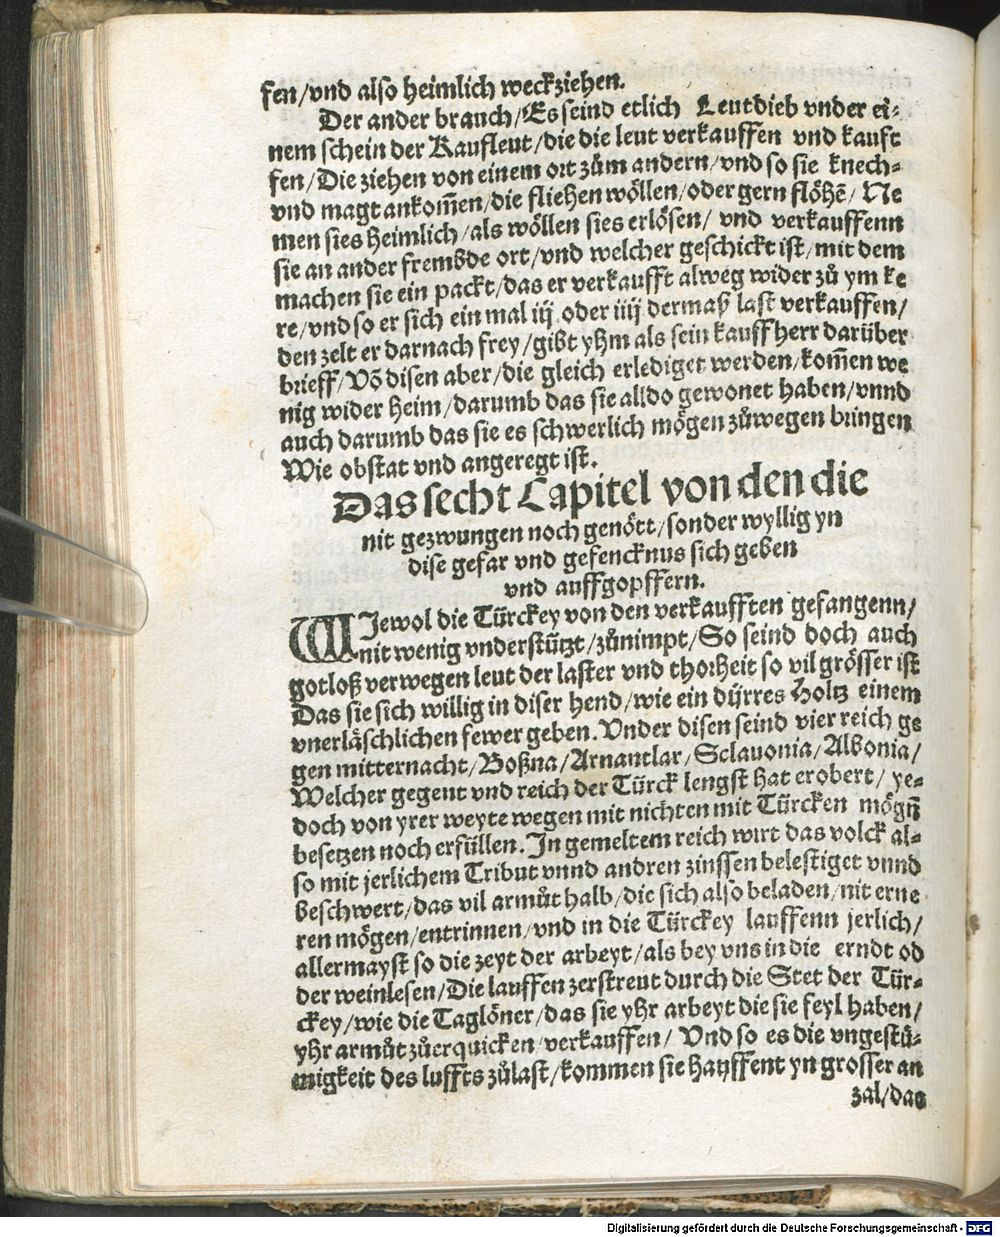 fen/vnd also heimlich weckziehen.
Der ander brauch/Es seind etlich Leutdieb vnder ei-
nem schein der Kaufleut/die die leut verkauffen vnd kauft
fen/Die ziehen von einem ort zům andern/vnd so sie knech-
vnd magt ankom̃en/die fliehen wöllen/oder gern flöhẽ/ Ne
men sies heimlich/als wöllen sies erlösen/ vnd verkauffenn
sie an ander frembde ort/vnd welcher geschickt ist/mit dem
machen sie ein packt/das er verkaufft alweg wider zů ym ke
re/vnd so er sich ein mal iij oder iiij dermaß last verkauffen/
den zelt er darnach frey/gibt yhm als sein kauffherr darüber
brieff/Võ disen aber/die gleich erlediget werden/kom̃en we
nig wider heim/darumb das sie alldo gewonet haben/vnnd
auch darumb das sie es schwerlich mögen zůwegen bringen
Wie obstat vnd angeregt ist.
Das secht Capitel von den die
nit gezwungen noch genött/sonder wyllig yn
dise gefar vnd gefencknus sich geben
vnd auffgopffern.
WJewol die Türckey von den verkaufften gefangenn/
nit wenig vnderstützt/zůnimpt/So seind doch auch
gotloß verwegen leut der laster vnd thorheit so vil grösser ist
Das sie sich willig in diser hend/wie ein dürres Holtz einem
vnerläschlichen fewer geben. Vnder disen seind vier reich ge
gen mitternacht/Boßna/Arnantlar/Sclauonia/Albonia/
Welcher gegent vnd reich der Türck lengst hat erobert/ ye-
doch von yrer weyte wegen mit nichten mit Türcken mögñ
besetzen noch erfüllen. Jn gemeltem reich wirt das volck al-
so mit jerlichem Tribut vnnd andren zinssen belestiget vnnd
beschwert/das vil armůt halb/die sich also beladen/nit erne
ren mögen/entrinnen/vnd in die Türckey lauffenn jerlich/
allermayst so die zeyt der arbeyt/als bey vns in die erndt od
der weinlesen/Die lauffen zerstreut durch die Stet der Tür-
ckey/wie die Taglöner/das sie yhr arbeyt die sie feyl haben/
yhr armůt zůerquicken/verkauffen/ Vnd so es die vngestü-
migkeit des luffts zůlast/kommen sie hauffent yn grosser an
zal/das
Digitalisierung gefördert durch die Deutsche Forschungsgemeinschaft - DFG